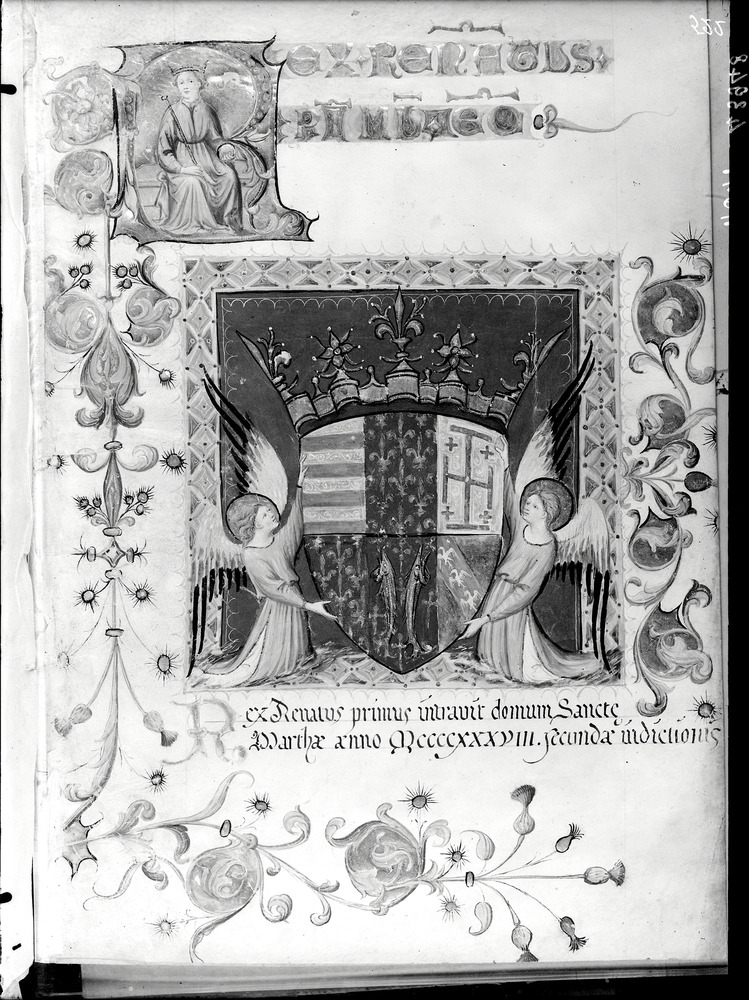 REX·RENATUS·
Rex Renatus primus intravit domum Sancte
Marthæ anno Mccccxxxviii. secundæ indictionis